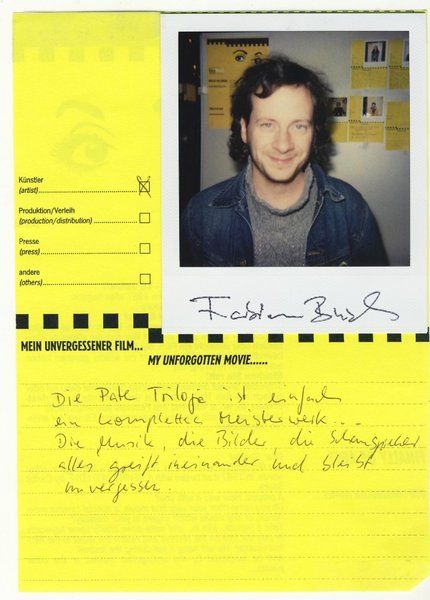 Künstler
(artist)
Produktion/Verleih
(production/distribution)
Presse
(press)
andere
(others)
Fabian Busch
MEIN UNVERGESSENER FILM...
MY UNFORGOTTEN MOVIE......
Die Pate Trilogie ist einfach
ein komplettes Meisterwerk...
Die Musik, die Bilder, die Schauspieler
alles greift ineinander und bleibt
unvergessen.